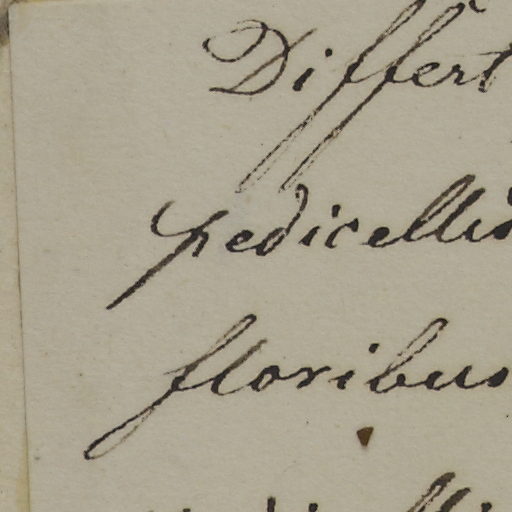 Differt
pedicellis
floribus